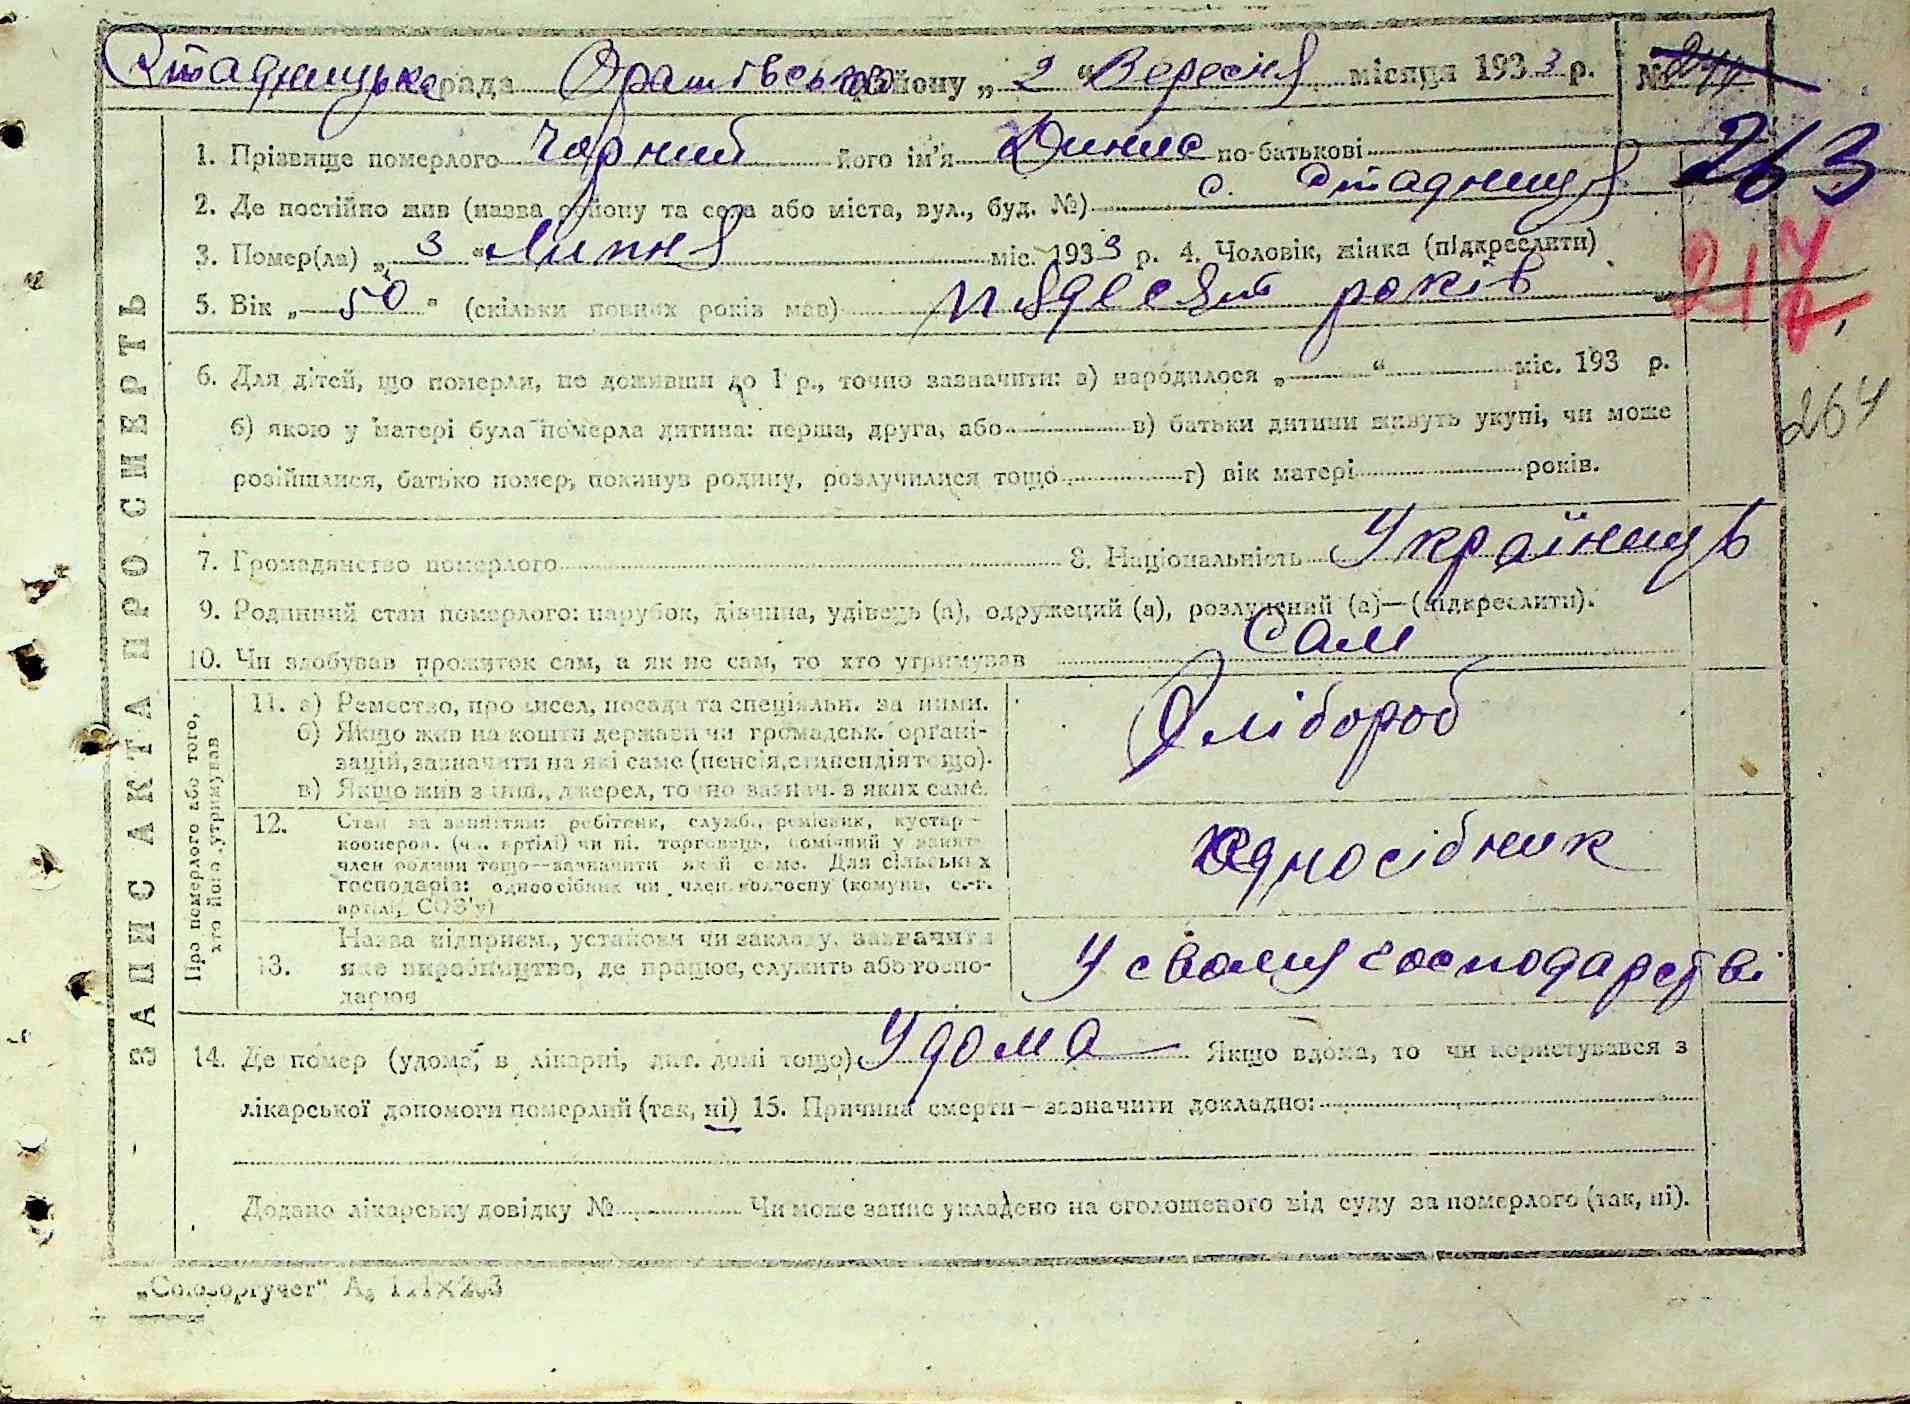 Стадницька рада Оратівського району „ 2 “ Вересня місяця 1933 р. № 244
263
1. Прізвище померлого Чорний його ім'я Динис по-батькові
2. Де постійно жив (назва району та села або міста, вул., буд. №) с. Стадниця
217
3. Помер(ла) „ 3 “ Липня міс. 1933 р. 4. Чоловік, жінка (підкреслити)
5. Вік „ 50 “ (скільки повних років мав) пядесят років
6. Для дітей, що померли, не доживши до 1 р., точно зазначити: а) народилося „ “ міс. 193 р.
264
б) якою у матері була померла дитина: перша, друга, або в) батьки дитини живуть укупі, чи може
розійшлися, батько помер, покинув родину, розлучилися тощо г) вік матері років.
7. Громадянство померлого 8. Національність Українць
9. Родинний стан померлого: парубок, дівчина, удівець (а), одружений (а), розлучений (а)—(підкреслити).
10. Чи здобував прожиток сам, а як не сам, то хто утримував Сам
ЗАПИСКА ПРО СМЕРТЬ
Про померлого або того,
хто його утримував
11. а) Ремество, промисел, посада та спеціяльн. за ними.
б) Якщо жив на кошти держави чи громадськ. органі-
зацій, зазначити на які саме (пенсія, стипендія тощо).
в) Якщо жив з інш., джерел, точно зазнач. з яких саме.
Хлібороб
12. Стан за заняттям: робітник, служб., ремісник, кустар-
кооперов. (чл. артілі) чи ні, торговець, помічний у занятт.
член родини тощо—зазначити який саме. Для сільських
господарів: одноосібник чи член колгоспу (комуни, с.-г.
артілі, СОЗ'у)
Односібник
13. Назва підприєм., установи чи закладу, зазначити
яке виробництво, де працює, служить або госпо-
дарює
У своему господарстві
14. Де помер (удома, в лікарні, дит. домі тощо) Удома Якщо вдома, то чи користувався з
лікарської допомоги померлий (так, ні) 15. Причина смерти – зазначити докладно:
Додано лікарську довідку № Чи може запис укладено на оголошеного від суду за померлого (так, ні).
„Союзоргучет“